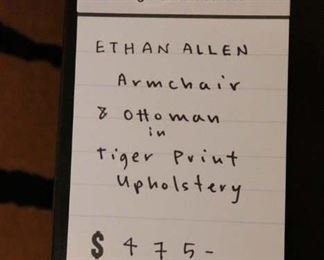 ETHAN ALLEN
Armchair
& Ottoman
in
Tiger Print
Upholstery
$ 475-